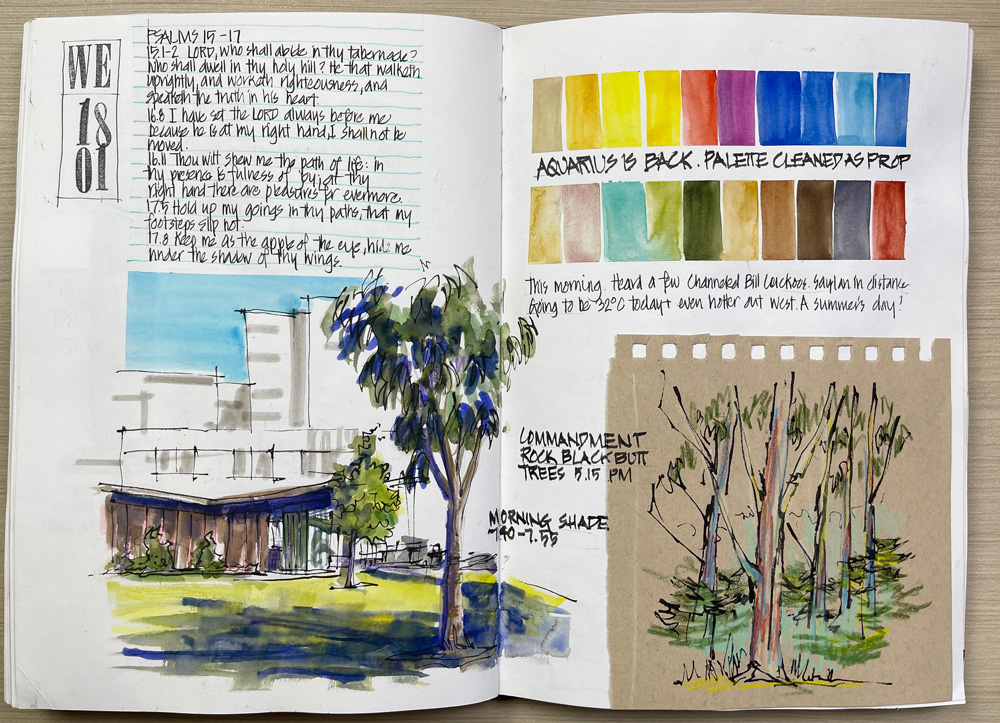 WE
18
01
PSALMS 15-17
15.1-2 LORD, who shall abide in thy tabernacle?
who shall dwell in thy holy hill? He that walketh
uprightly, and worketh righteousness, and
speaketh the truth in his heart.
16.8 I have set the LORD always before me
because he is at my right hand, I shall not be
moved.
16.11 Thou wilt shew me the path of life: in
thy presence is fulness of joy; at thy
right hand there are pleasures for evermore.
17.5 Hold up my goings in thy paths, that my
footsteps slip not.
17.8 Keep me as the apple of the eye, hide me
under the shadow of thy wings.
AQUARIUS IS BACK. PALETTE CLEANED AS PROP
this morning. Heard a few Channeled Bill Cuckoos. in distance
Going to be 32°C today + even hotter out west. A summer's day!
COMMANDMENT
ROCK BLACK BUTT
TREES 5.15 PM
MORNING SHADE
7.40-7.55